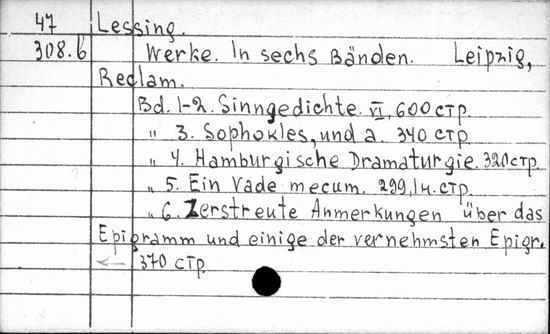 47 Lessing.
308.б Werke. In sechs Bänden. Leipzig,
Reclam.
Bd. 1-2. Sinngedichte. VI, 600 стр.
" 3. Sophokles, und a. 340 стр.
" 4. Hamburgische Dramaturgie. 320 стр.
" 5. Ein Vade mecum. 299, Iн. стр.
" 6. Zerstreute Anmerkungen über das
Epigramm und einige der vernehmsten Epigr.
← 370 стр.